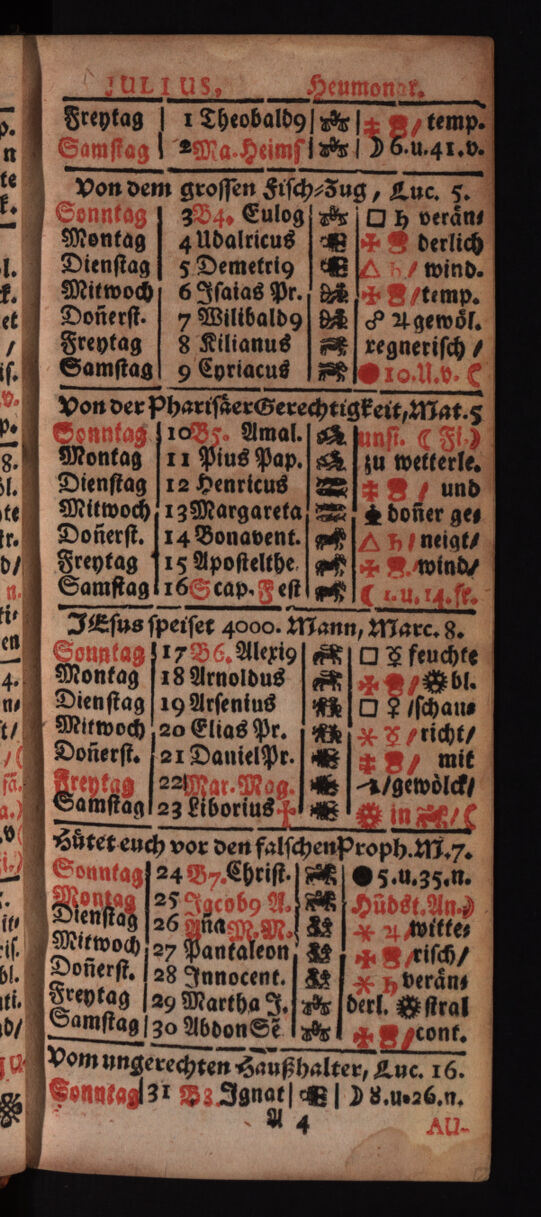 JULIUS, Heumonat.
Freytag 1 Theobald9 temp.
Samstag 2 Ma. Heims ☽ 6.u.41.v.
Von dem grossen Fisch-Zug, Luc. 5.
Sonntag 3 B4. Eulog □ ♄ verän-
Montag 4 Udalricus derlich
Dienstag 5 Demetri9 △ ♄ / wind.
Mitwoch 6 Isaias Pr. / temp.
Doñerst. 7 Wilibald9 ☍ ♃ gewöl.
Freytag 8 Kilianus regnerisch /
Samstag 9 Cyriacus ● 10.U.v. ☾
Von der Pharisäer Gerechtigkeit, Mat. 5
Sonntag 10 B5. Amal. unst. ☾ Fi.)
Montag 11 Pius Pap. zu wetterle.
Dienstag 12 Henricus / und
Mitwoch 13 Margareta doñer ge-
Doñerst. 14 Bonavent. △ ♄ / neigt/
Freytag 15 Apostelthe. wind/
Samstag 16 Scap. Fest ☾ 1.u.14.fr.
JEsus speiset 4000. Mann, Marc. 8.
Sonntag 17 B6. Alexi9 □ ☿ feuchte
Montag 18 Arnoldus / bl.
Dienstag 19 Arsenius □ ♀ /schau-
Mitwoch 20 Elias Pr. ⚹ ☿ / richt/
Doñerst. 21 Daniel Pr. / mit
Freytag 22 Mar. Mag. /gewölck/
Samstag 23 Liborius in / ☾
Hütet euch vor den falschen Proph. M. 7.
Sonntag 24 B7. Christ. ● 5.u.35.n.
Montag 25 Jacob9 A. Hüdst. An.)
Dienstag 26 Añа M. M. ⚹ ♃ /witte-
Mitwoch 27 Pantaleon / risch/
Doñerst. 28 Innocent. ⚹ ♄ verän-
Freytag 29 Martha J. derl. stral
Samstag 30 Abdon Sē / cont.
Vom ungerechten Haußhalter, Luc. 16.
Sonntag 31 B8. Ignat ☽ 8.u.26.n.
A 4 AU-